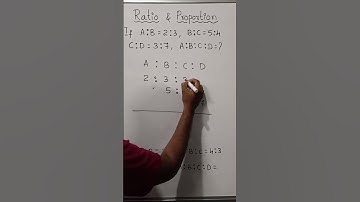 Ratio & Proportion
If A:B = 2:3, B:C = 5:4
C:D = 3:7, A:B:C:D = ?
A : B : C : D
2 : 3 : 3
5 :
B:C = 4:3
A:B:C:D =